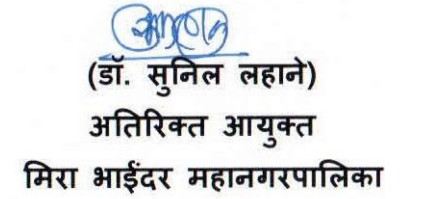 (डॉ. सुनिल लहाने)
अतिरिक्त आयुक्त
मिरा भाईंदर महानगरपालिका